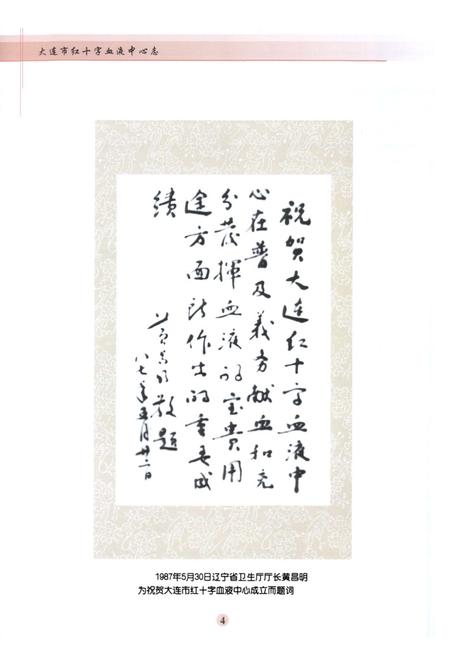 大连市红十字血液中心志
祝贺大连红十字血液中
心在普及义务献血和充
分发挥血液的宝贵用
途方面所作出的重要成
绩
黄昌明敬题
八七年五月廿二日
1987年5月30日辽宁省卫生厅厅长黄昌明
为祝贺大连市红十字血液中心成立而题词
4